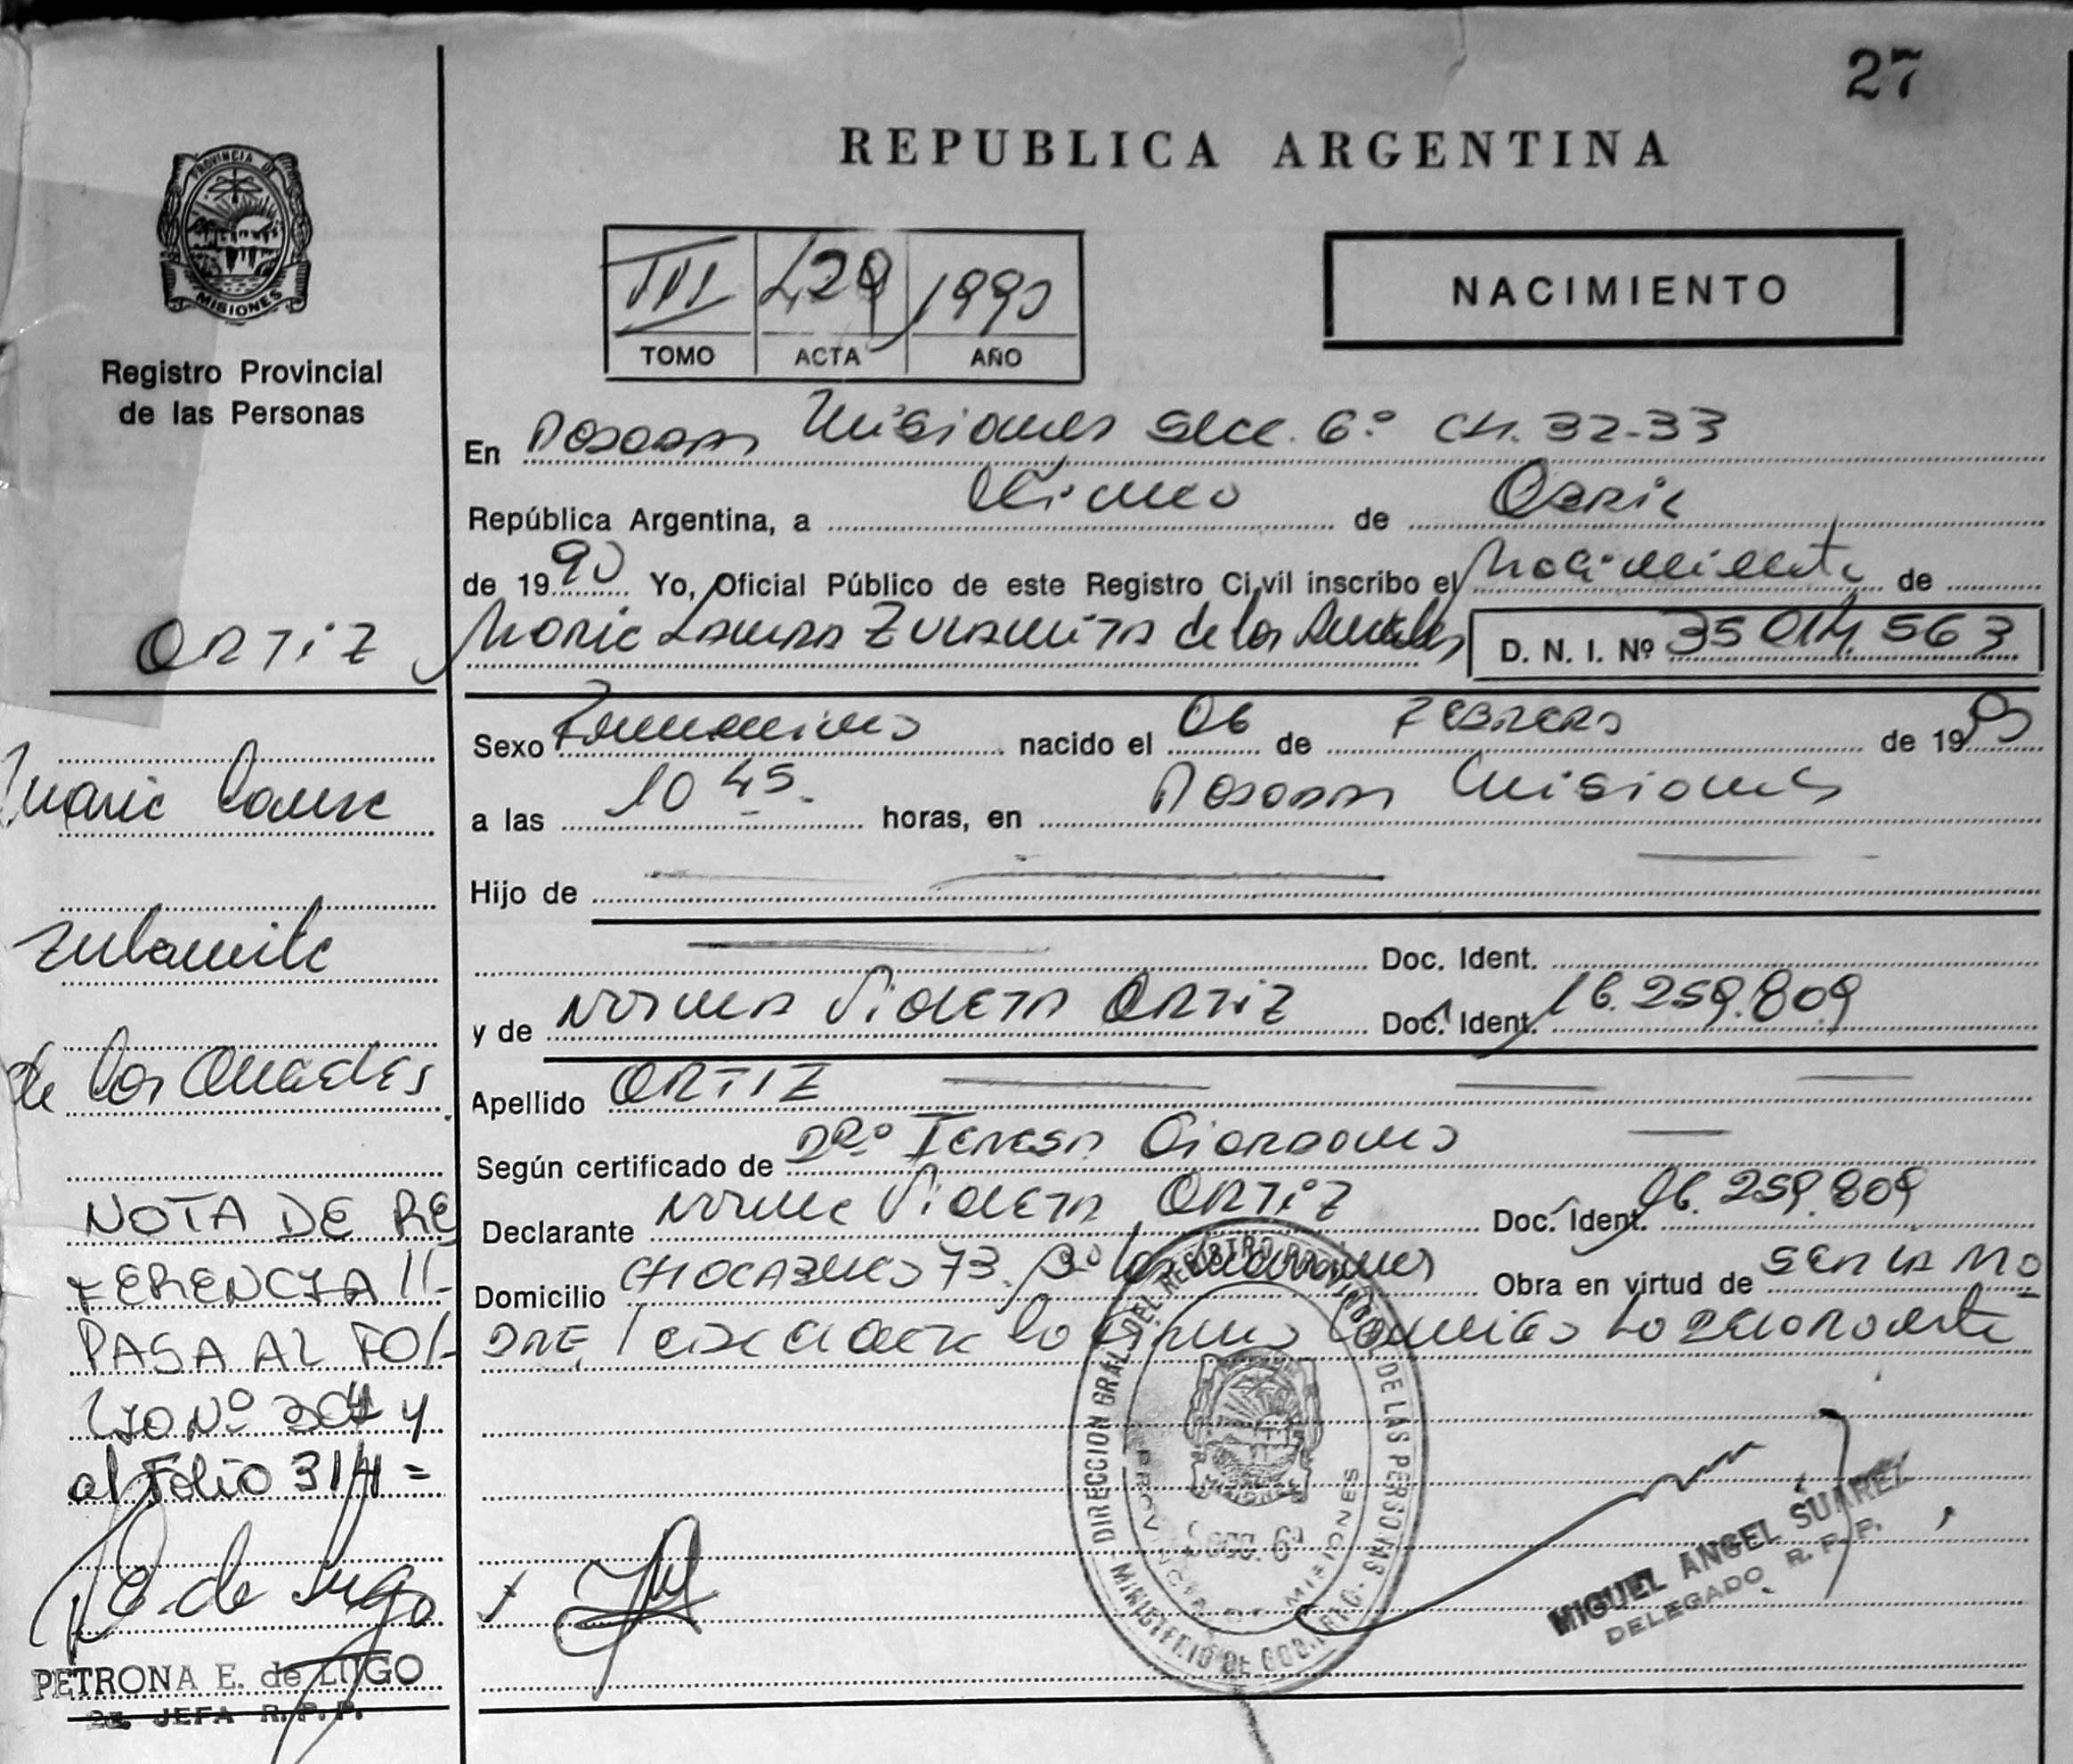 27
REPUBLICA ARGENTINA
PROVINCIA D
MISIONES
Registro Provincial
de las Personas
III 429 1990
TOMO ACTA AÑO
NACIMIENTO
En Posadas Misiones Secc. 6º CH. 32-33
República Argentina, a cinco de Abril
de 1990 Yo, Oficial Público de este Registro Civil inscribo el Nacimiento de
Maria Laura Zulamita de los Angeles D. N. I. Nº 35.014.563
ORTIZ
Sexo Femenino nacido el 06 de FEBRERO de 1990
a las 10 45. horas, en Posadas Misiones
Hijo de
Doc. Ident.
y de Norma Violeta ORTIZ Doc. Ident. 16.259.809
Apellido ORTIZ
Según certificado de DRª Teresa
Declarante Norma Violeta ORTIZ Doc. Ident. 16.259.809
Domicilio 73. Obra en virtud de SER LA MA
DRE,
Maria Laura
Zulamita
de los Angeles
NOTA DE RE
FERENCIA II-
PASA AL FO/-
LIO Nº 304 y
al Folio 314=
P. E. de Lugo
PETRONA E. de LUGO
2a. JEFA R. P. P.
DIRECCION GRAL. DEL REGISTRO PROVINCIAL DE LAS PERSONAS
MINISTERIO DE GOBIERNO
PROVINCIA DE MISIONES
SECC. 6ª
MIGUEL ANGEL SUAREZ
DELEGADO R. P. P.